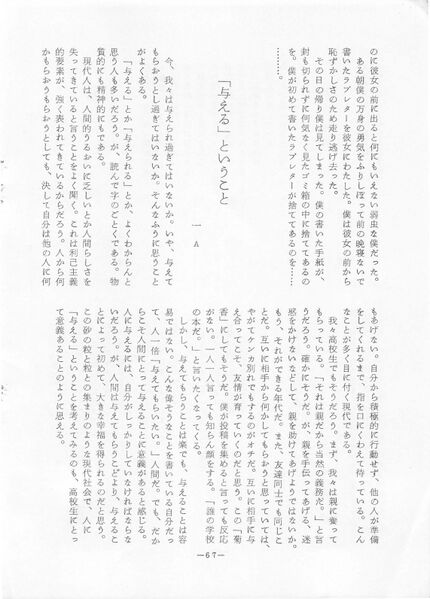 のに彼女の前に出ると何にもいえない弱虫な僕だった。
ある朝僕の万身の勇気をふりしぼって前の晩寝ないで
書いたラブレターを彼女にわたした。僕は彼女の前から
恥ずかしさのため走り逃げ去った。
その日の帰り僕は見てしまった。僕の書いた手紙が、
封も切られずに何気なく見たゴミ箱の中に捨ててあるの
を。僕が初めて書いたラブレターが捨ててあるのを……
………。
「与える」ということ
一 A
今、我々は与えられ過ぎてはいないか。いや、与えて
もらおうとし過ぎてはいないか。そんなふうに思うこと
がよくある。
「与える」とか「与えられる」とか、よくわからんと
思う人も多いだろう。が、読んで字のごとくである。物
質的にも精神的にもである。
現代人は、人間的うるおいに乏しいとか人間らしさを
失ってきていると言うことをよく聞く。これは利己主義
的要素が、強く表われてきているからだろう。人から何
かもらおうもらおうとしても、決して自分は他の人に何
もあげない。自分から積極的に行動せず、他の人が準備
をしてくれるまで、指を口にくわえて待っている。こん
なことが多く目に付く現代である。
我々高校生でもそうだろう。まず、我々は親に養って
もらっている。「それは親だから当然の義務だ。」と言
うだろう。確かにそうだ。が、親を手伝ってあげる、迷
感をかけないなどして、親を助けてあげようではないか。
もう、それができる年代だ。また、友達同士でも同じこ
とだ。互いに相手から何かしてもらおうと思っていては、
やがてケンカ別れでもするのがオチだ。互いに相手に与
え合ってこそ、友情が育っていくのだと思う。この「菊
香」にしてもそうだ。僕が投稿を集めると言っても反応
がない。一人一人言っても知らん顔をする。「誰の学校
の本だ。」と言いたくなってくる。
しかし、与えてもらうことは楽でも、与えることは容
易ではない。こんな偉そうなことを書いている自分だっ
て、人一倍「与えてもらいたい。」人間だ。でも、だか
らこそ人間にとって与えることに意義があると感じる。
人に与えるには、自分がしっかりしていなければならな
いだろうが、人間は与えてもらうことより、与えるこ
とによって初めて、大きな幸福を得られるのだと思う。
この砂の粒と粒との集まりのような現代社会で、人に
「与える」ということを考えてみるのも、高校生にとっ
て意義あることのように思える。
―67―